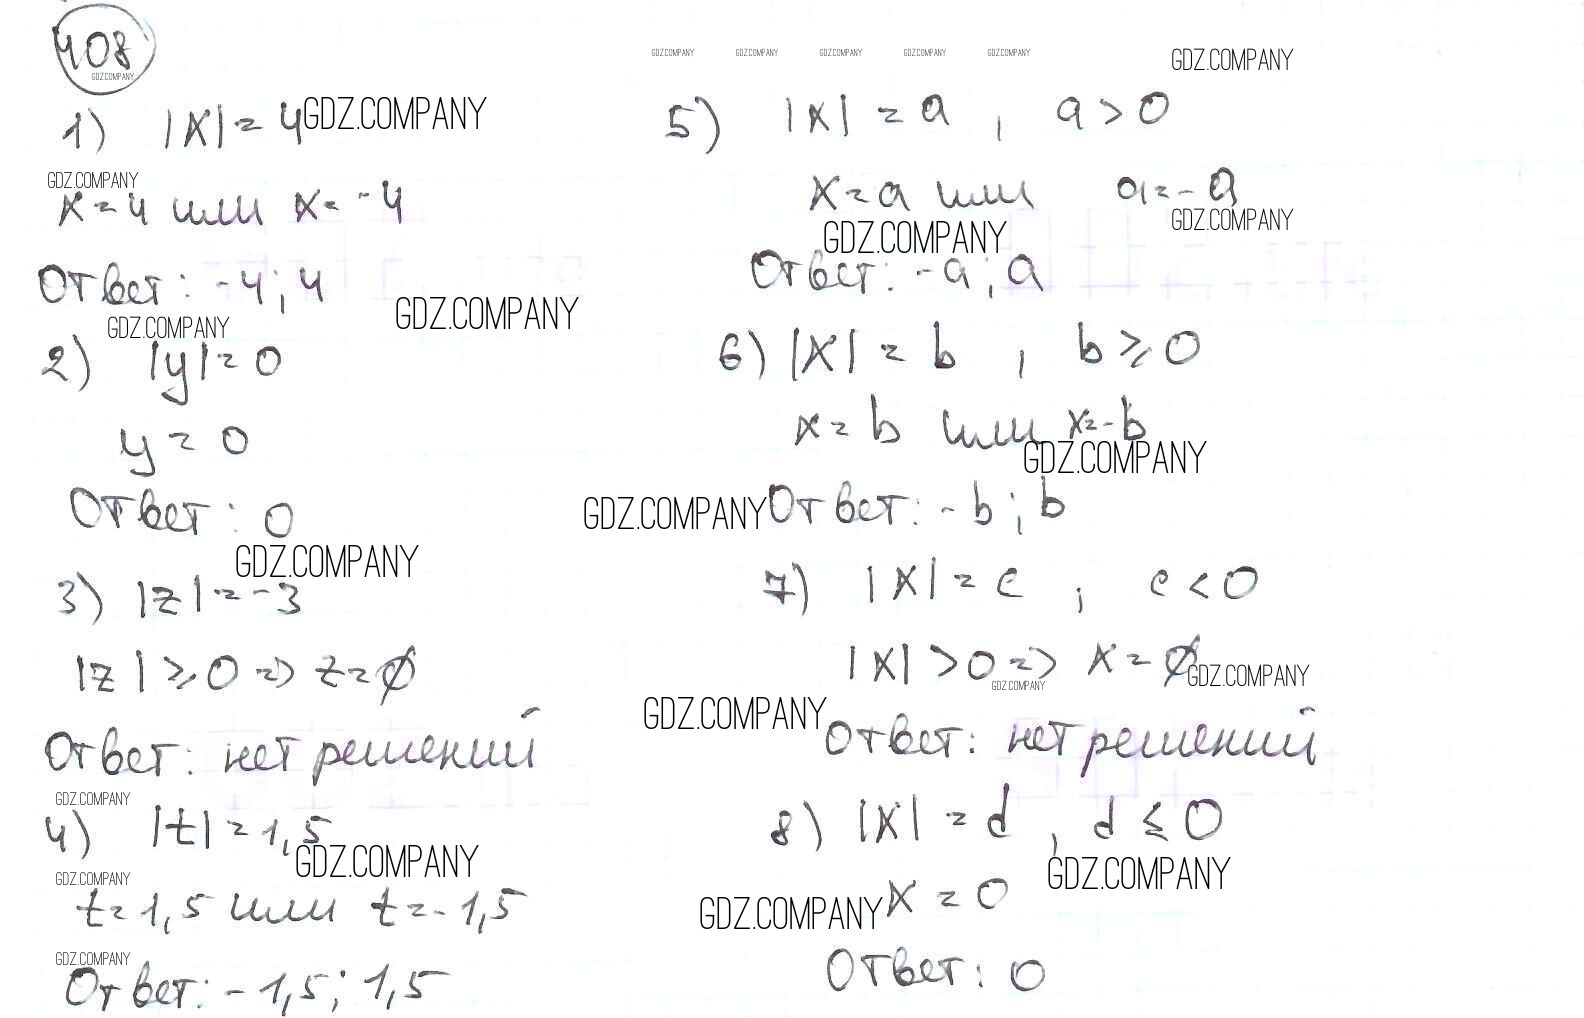 408
GDZ.COMPANY
GDZ.COMPANY GDZ.COMPANY GDZ.COMPANY GDZ.COMPANY GDZ.COMPANY
GDZ.COMPANY
1) |x| = 4
GDZ.COMPANY
GDZ.COMPANY
x = 4 или x = -4
Ответ: -4; 4
GDZ.COMPANY
GDZ.COMPANY
2) |y| = 0
y = 0
Ответ: 0
GDZ.COMPANY
3) |z| = -3
|z| ⩾ 0 => z = ∅
Ответ: нет решений
GDZ.COMPANY
4) |t| = 1,5
GDZ.COMPANY
GDZ.COMPANY
t = 1,5 или t = -1,5
GDZ.COMPANY
Ответ: -1,5; 1,5
5) |x| = a, a > 0
x = a или a = -a
GDZ.COMPANY
GDZ.COMPANY
Ответ: -a; a
6) |x| = b, b ⩾ 0
x = b или x = -b
GDZ.COMPANY
GDZ.COMPANY
Ответ: -b; b
7) |x| = c; c < 0
|x| > 0 => x = ∅
GDZ.COMPANY
GDZ.COMPANY
GDZ.COMPANY
Ответ: нет решений
8) |x| = d, d ⩽ 0
GDZ.COMPANY
GDZ.COMPANY
x = 0
Ответ: 0